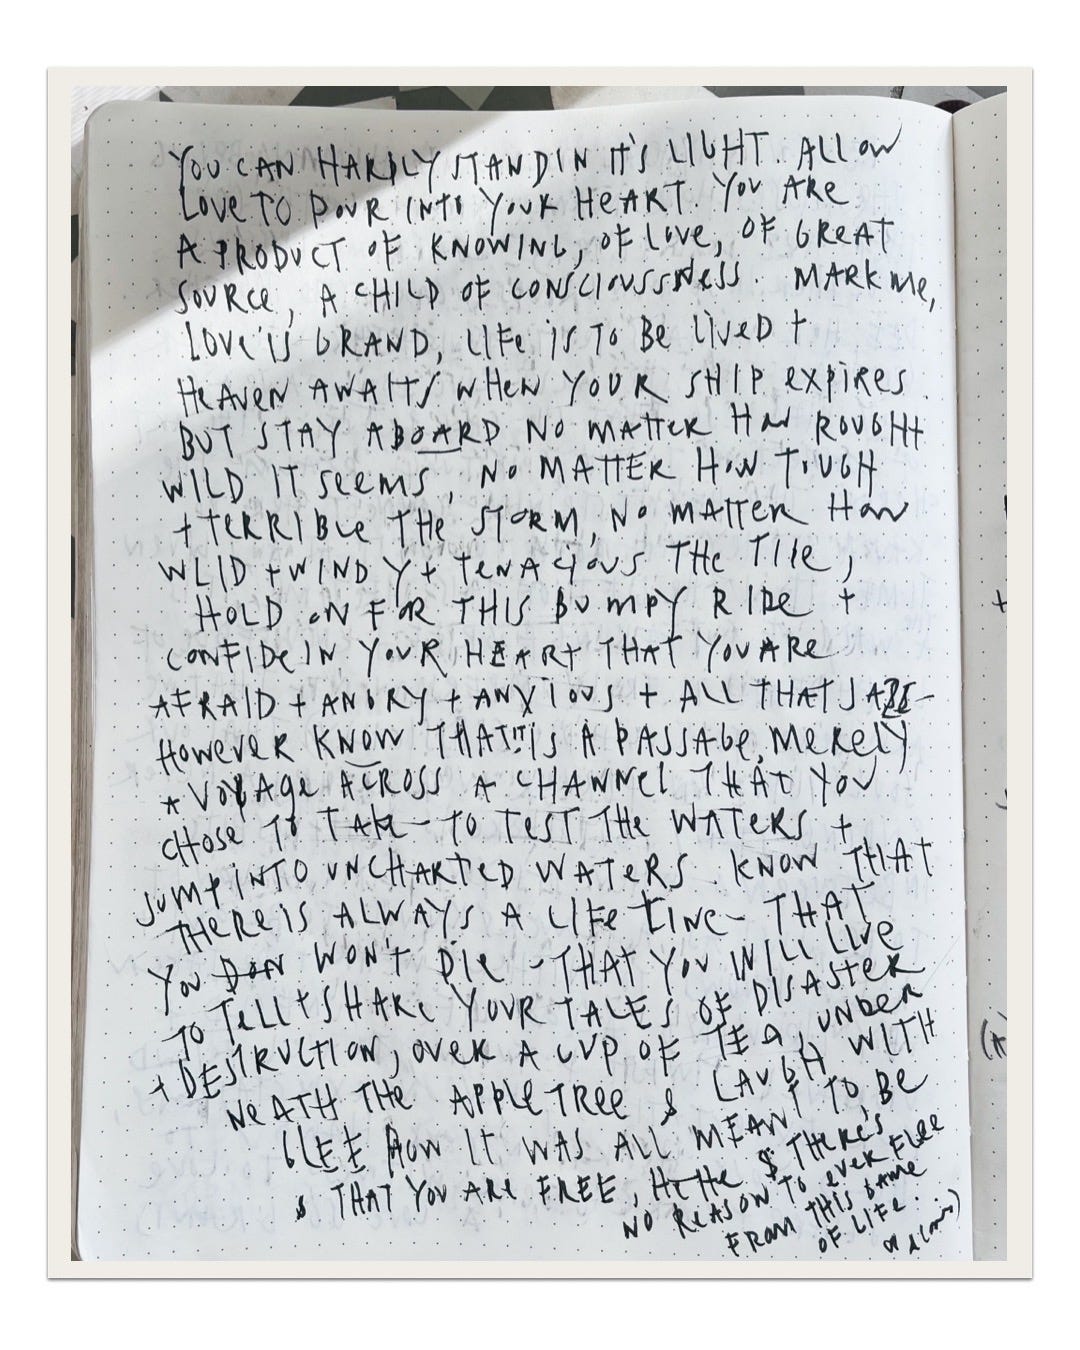 YOU CAN HARDLY STAND IN IT'S LIGHT. ALLOW
LOVE TO POUR INTO YOUR HEART. YOU ARE
A PRODUCT OF KNOWING, OF LOVE, OF GREAT
SOURCE, A CHILD OF CONSCIOUSSNESS. MARK ME,
LOVE IS GRAND, LIFE IS TO BE LIVED +
HEAVEN AWAITS WHEN YOUR SHIP EXPIRES.
BUT STAY ABOARD NO MATTER HOW ROUGH +
WILD IT SEEMS, NO MATTER HOW TOUGH
+ TERRIBLE THE STORM, NO MATTER HOW
WLID + WINDY + TENACIOUS THE TIDE,
HOLD ON FOR THIS BUMPY RIDE +
CONFIDE IN YOUR HEART THAT YOU ARE
AFRAID + ANGRY + ANXIOUS + ALL THAT JAZZ -
HOWEVER KNOW THAT IT IS A PASSAGE, MERELY
A VOYAGE ACROSS A CHANNEL THAT YOU
CHOSE TO TAKE - TO TEST THE WATERS +
JUMP INTO UNCHARTED WATERS. KNOW THAT
THERE IS ALWAYS A LIFE LINE - THAT
YOU WON'T DIE - THAT YOU WILL LIVE
TO TELL + SHARE YOUR TALES OF DISASTER
+ DESTRUCTION, OVER A CUP OF TEA, UNDER
NEATH THE APPLE TREE & LAUGH WITH
GLEE HOW IT WAS ALL MEANT TO BE
& THAT YOU ARE FREE, & THERE'S
NO REASON TO EVER FLEE
FROM THIS GAME
OF LIFE.